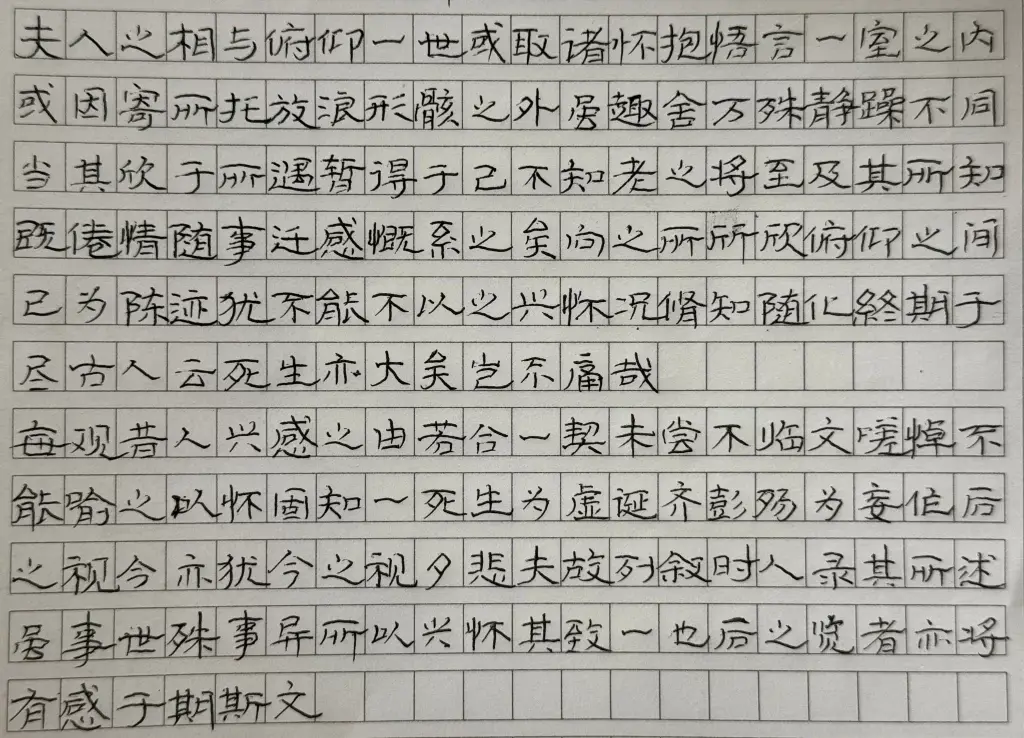 夫人之相与俯仰一世或取诸怀抱悟言一室之内
或因寄所托放浪形骸之外虽趣舍万殊静躁不同
当其欣于所遇暂得于己不知老之将至及其所知
既倦情随事迁感慨系之矣向之所所欣俯仰之间
已为陈迹犹不能不以之兴怀况脩知随化終期于
尽古人云死生亦大矣岂不痛哉
每观昔人兴感之由若合一契未尝不临文嗟悼不
能喻之以怀固知一死生为虚诞齐彭殇为妄作后
之视今亦犹今之视夕悲夫故列叙时人录其所述
虽事世殊事异所以兴怀其致一也后之览者亦将
有感于期斯文